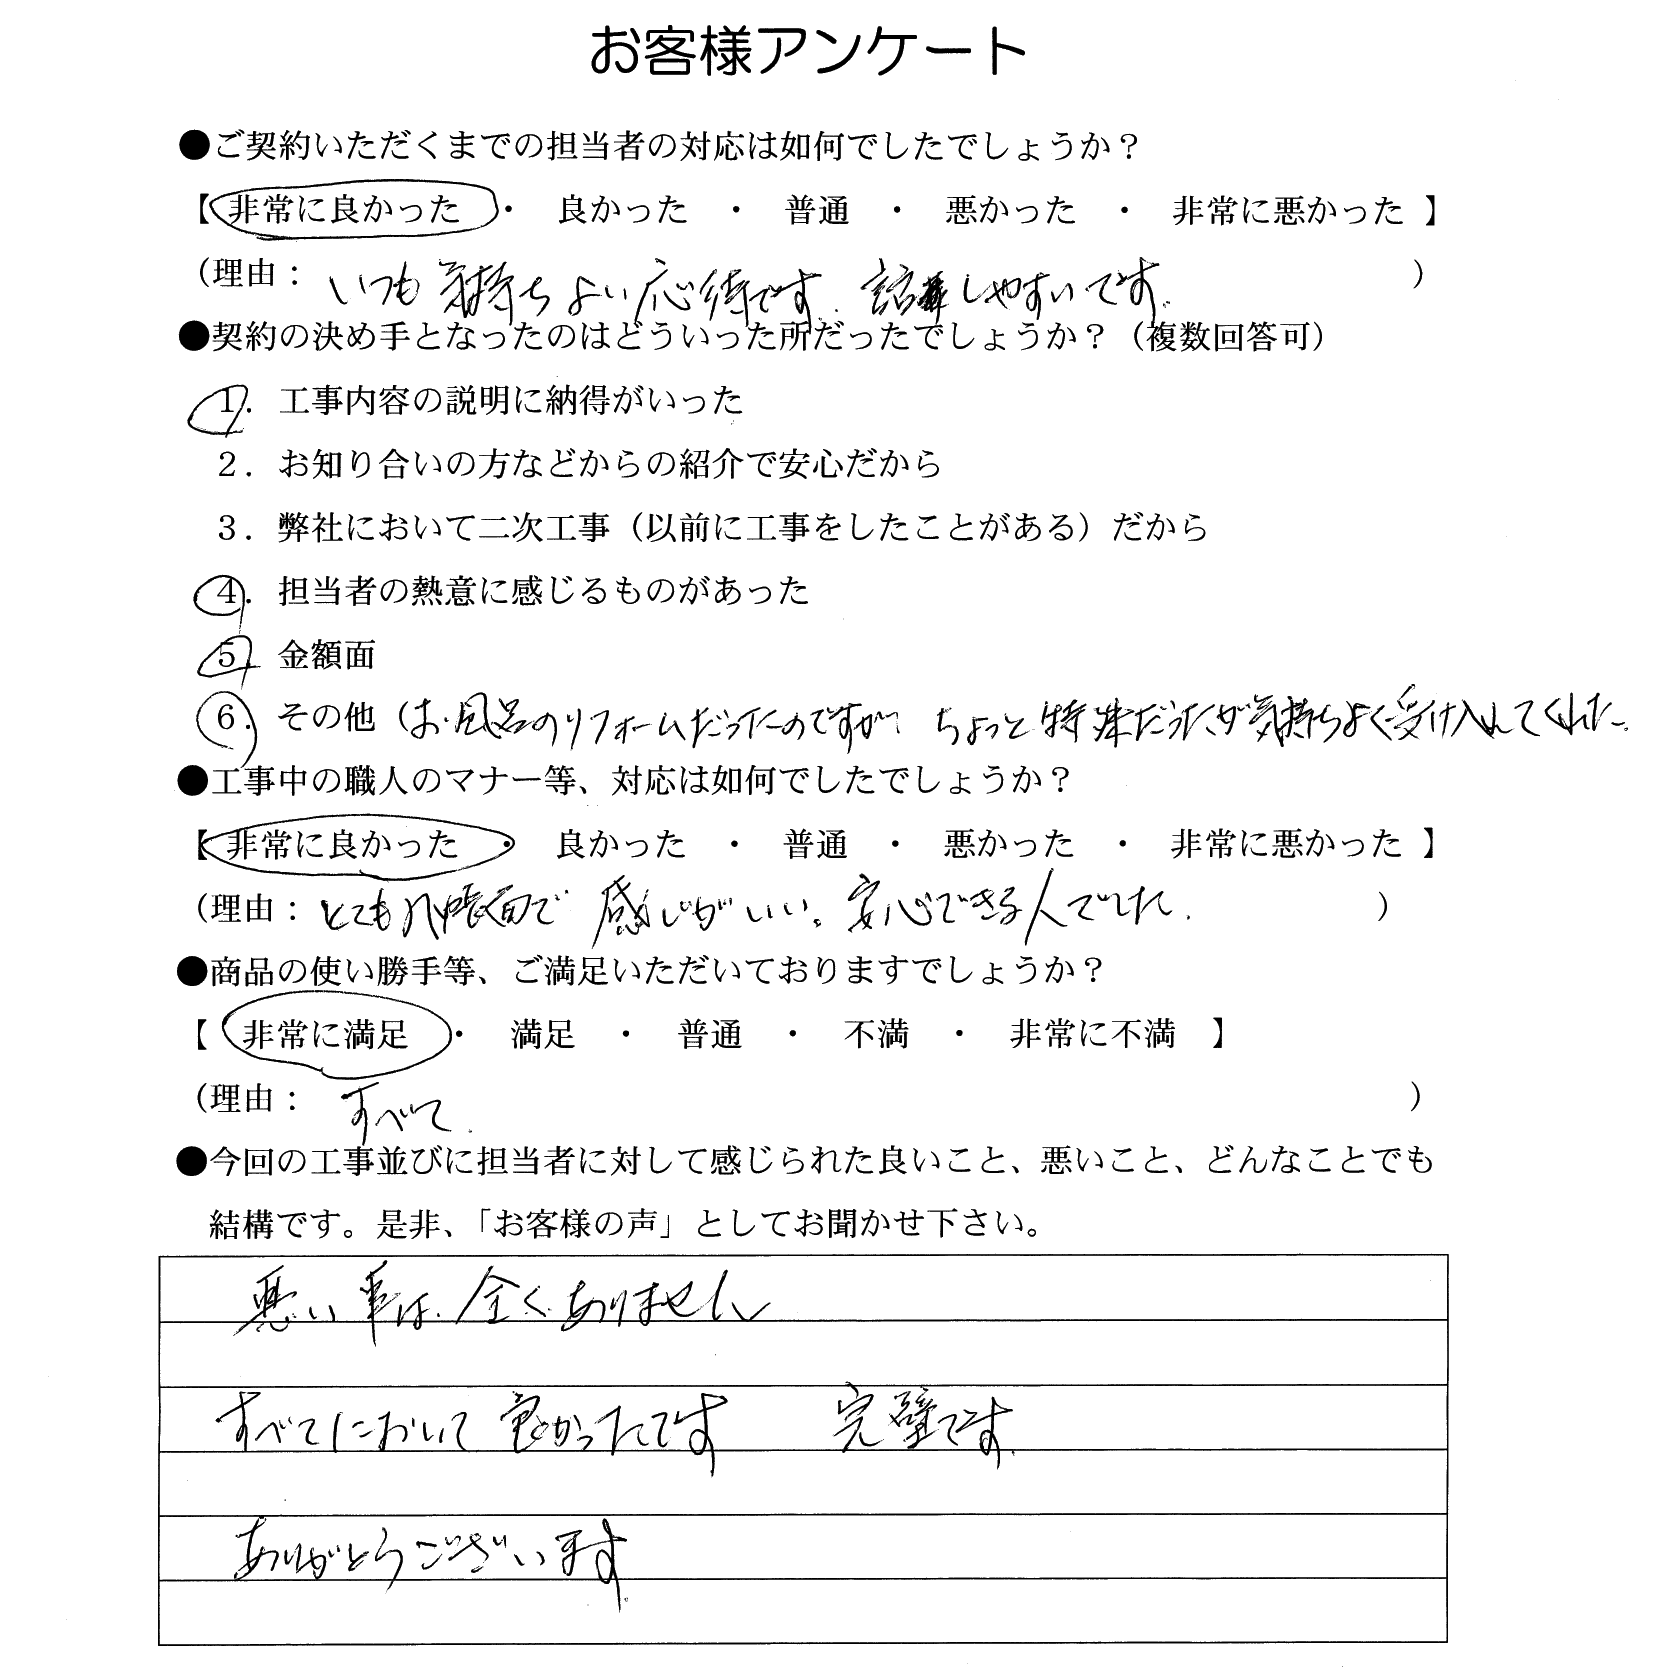 お客様アンケート
●ご契約いただくまでの担当者の対応は如何でしたでしょうか？
【 非常に良かった ・ 良かった ・ 普通 ・ 悪かった ・ 非常に悪かった 】
（理由： いつも 気持ちよい応待です. 話しやすいです. ）
●契約の決め手となったのはどういった所だったでしょうか？（複数回答可）
１. 工事内容の説明に納得がいった
２. お知り合いの方などからの紹介で安心だから
３. 弊社において二次工事（以前に工事をしたことがある）だから
４. 担当者の熱意に感じるものがあった
５. 金額面
６. その他（お風呂のリフォームだったのですが、 ちょっと特殊だったが気持ちよく受け入れてくれた.
●工事中の職人のマナー等、対応は如何でしたでしょうか？
【 非常に良かった ・ 良かった ・ 普通 ・ 悪かった ・ 非常に悪かった 】
（理由： とても几帳面で 感じがいい。安心できる人でした. ）
●商品の使い勝手等、ご満足いただいておりますでしょうか？
【 非常に満足 ・ 満足 ・ 普通 ・ 不満 ・ 非常に不満 】
（理由： すべて. ）
●今回の工事並びに担当者に対して感じられた良いこと、悪いこと、どんなことでも
結構です。是非、「お客様の声」としてお聞かせ下さい。
悪い事は 全くありません
すべてにおいて 良かったです 完璧です.
ありがとうございます.